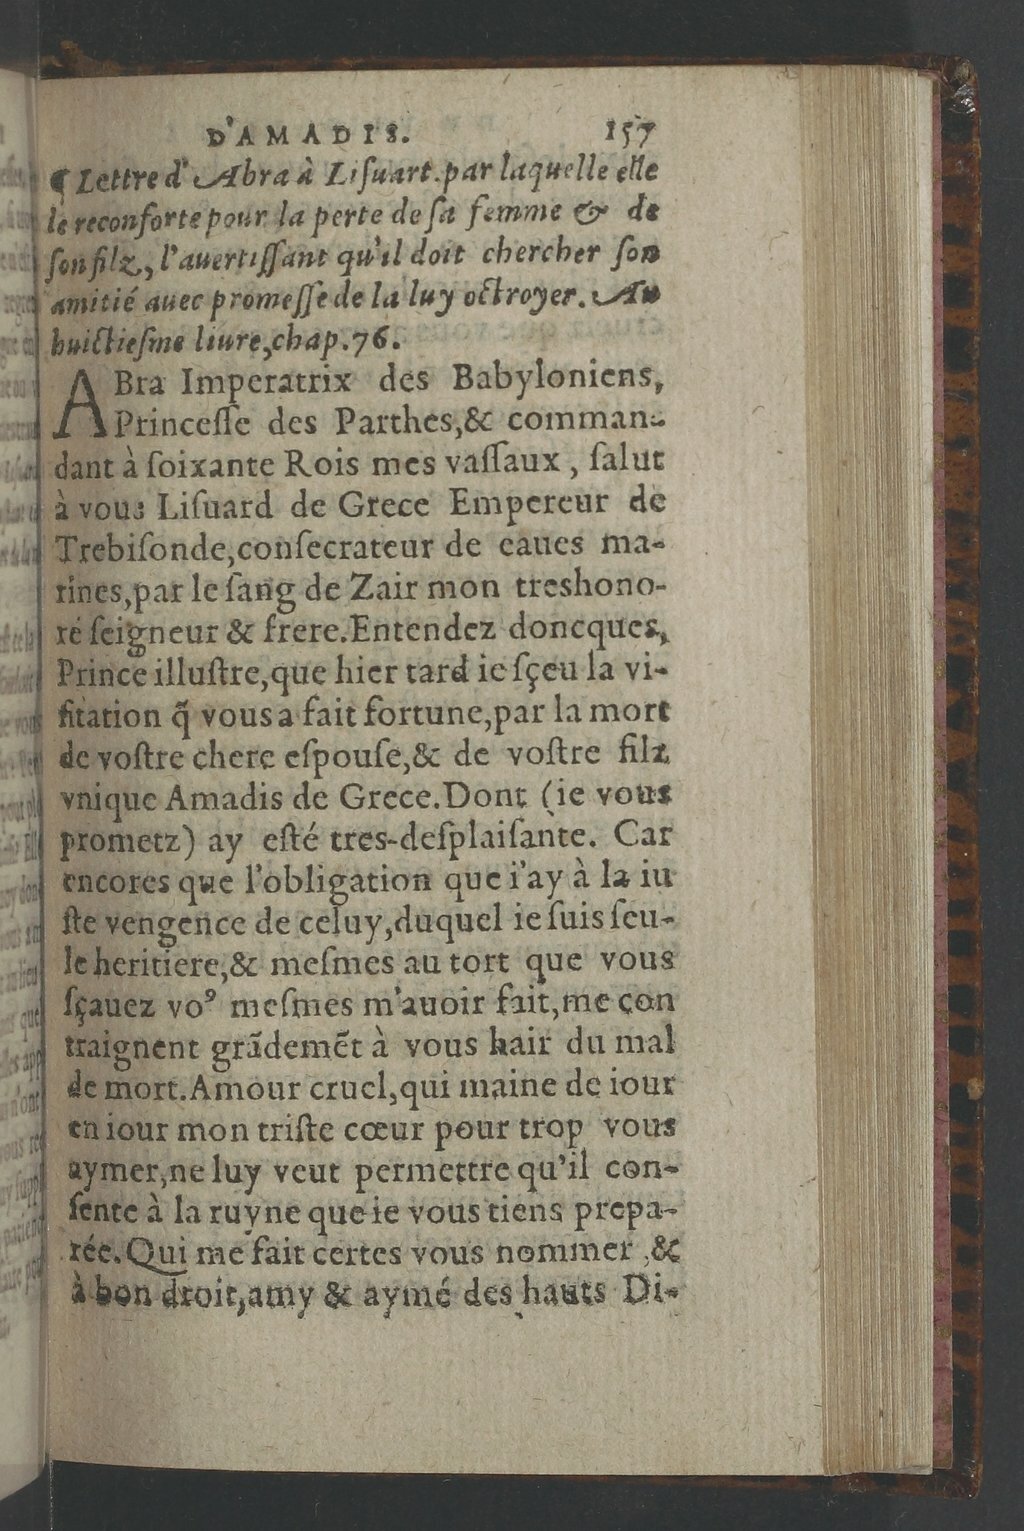 D'AMADIS. 157
¶ Lettre d'Abra à Liſuart. par laquelle elle
le reconforte pour la perte de ſa femme & de
ſon filz, l'auertiſſant qu'il doit chercher ſon
amitié auec promeſſe de la luy octroyer. Au
huictieſme liure, chap. 76.
ABra Imperatrix des Babyloniens,
Princeſſe des Parthes, & comman-
dant à ſoixante Rois mes vaſſaux, ſalut
à vous Liſuard de Grece Empereur de
Trebiſonde, conſecrateur de eaues ma-
rines, par le ſang de Zair mon treshono-
ré ſeigneur & frere. Entendez doncques,
Prince illuſtre, que hier tard ie ſçeu la vi-
ſitation q̃ vous a fait fortune, par la mort
de voſtre chere eſpouſe, & de voſtre filz
vnique Amadis de Grece. Dont (ie vous
prometz) ay eſté tres-deſplaiſante. Car
encores que l'obligation que i'ay à la iu
ſte vengence de celuy, duquel ie ſuis ſeu-
le heritiere, & meſmes au tort que vous
ſçauez voꝰ meſmes m'auoir fait, me con
traignent grãdemẽt à vous hair du mal
de mort. Amour cruel, qui maine de iour
en iour mon triſte cœur pour trop vous
aymer, ne luy veut permettre qu'il con-
ſente à la ruyne que ie vous tiens prepa-
rée. Qui me fait certes vous nommer, &
à bon droit, amy & aymé des hauts Di-